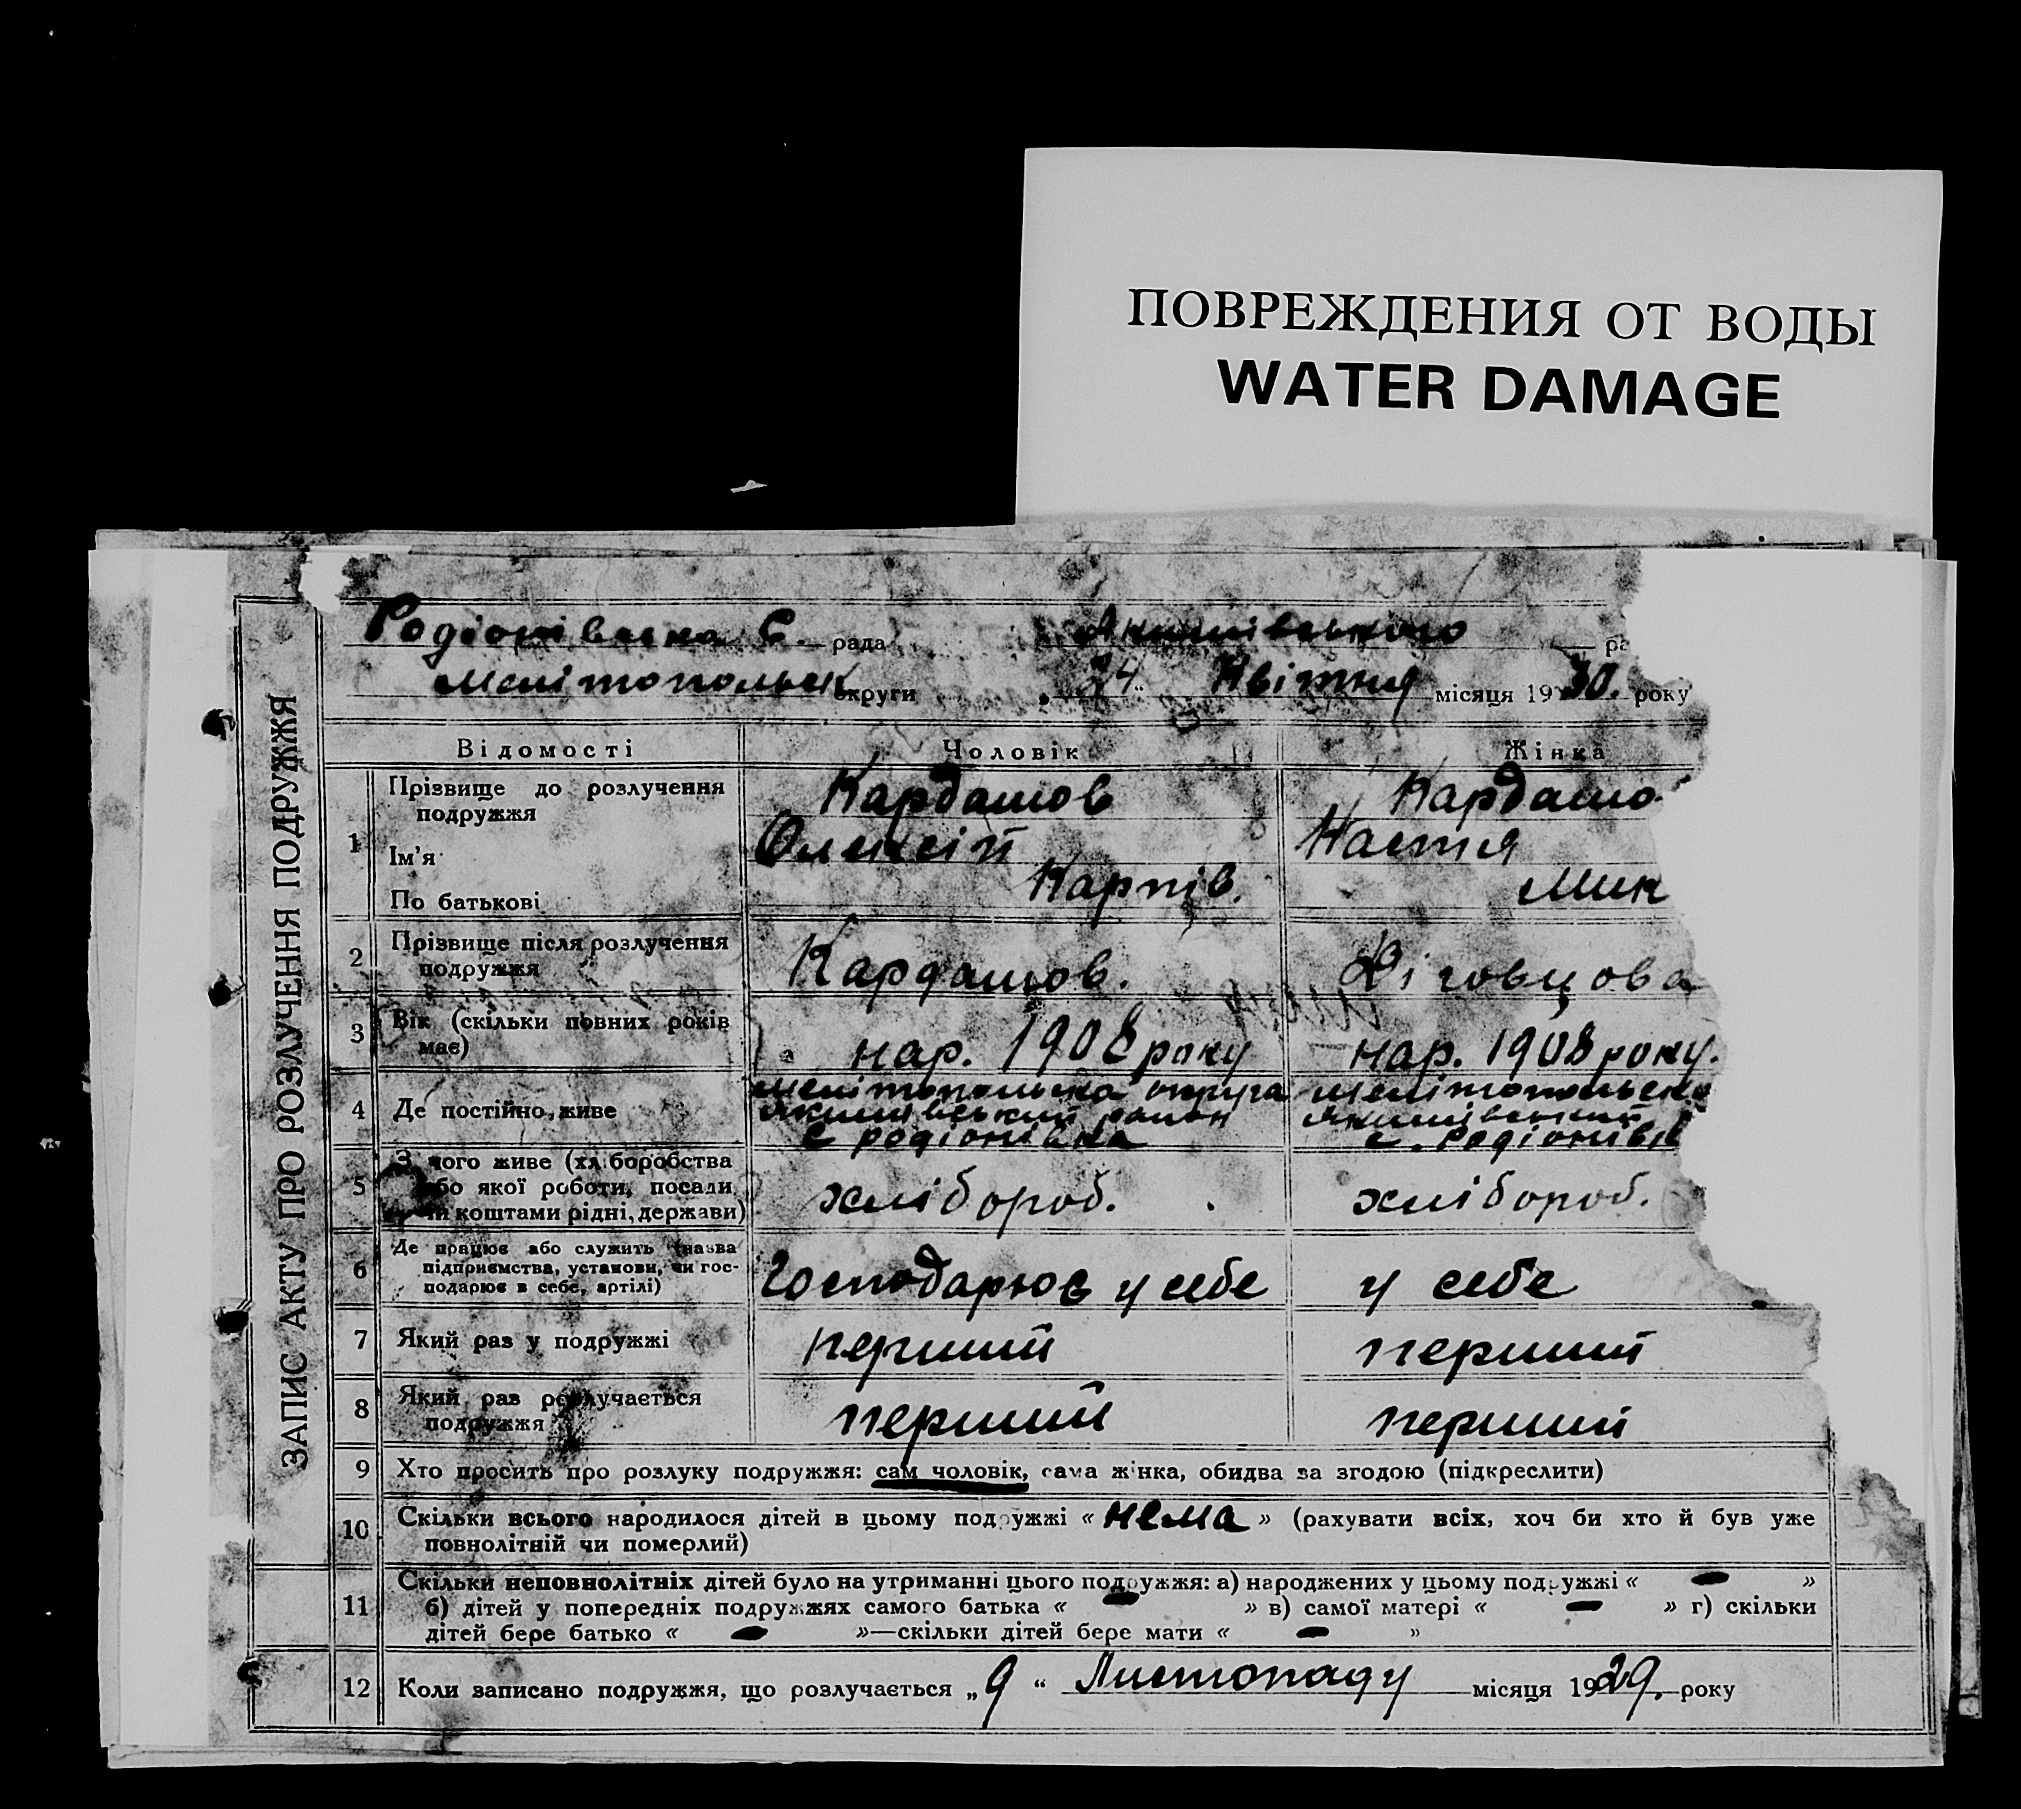 ПОВРЕЖДЕНИЯ ОТ ВОДЫ
WATER DAMAGE
ЗАПИС АКТУ ПРО РОЗЛУЧЕННЯ ПОДРУЖЖЯ
Родіонівська С. рада Якимівського ра
Мелітопольськ округи „24" Квітня місяця 1930. року
Відомості Чоловік Жінка
1 Прізвище до розлучення Кардашов Кардашо
подружжя
Ім'я Олексій Настя
По батькові Карпів. Мик
2 Прізвище після розлучення Кардашов. Ліговцова
подружжя
3 Вік (скільки повних років нар. 1908 року нар. 1908 року.
має)
4 Де постійно живе Мелітопольська округа Мелітопольськ
Якимівський район Якимівський
с родіонівка с. Родіонівк
5 З чого живе (хліборобства хлібороб. хлібороб.
або якої роботи, посади,
чи коштами рідні, держави)
6 Де працює або служить (назва Господарює у себе у себе
підприємства, установи, чи гос-
подарює в себе, артілі)
7 Який раз у подружжі перший перший
8 Який раз розлучається перший перший
подружжя
9 Хто просить про розлуку подружжя: сам чоловік, сама жінка, обидва за згодою (підкреслити)
10 Скільки всього народилося дітей в цьому подружжі « нема » (рахувати всіх, хоч би хто й був уже
повнолітній чи померлий)
11 Скільки неповнолітніх дітей було на утриманні цього подружжя: а) народжених у цьому подружжі « — »
б) дітей у попередніх подружжях самого батька « — » в) самої матері « — » г) скільки
дітей бере батько « — »—скільки дітей бере мати « — »
12 Коли записано подружжя, що розлучається „9" Листопаду місяця 1929. року